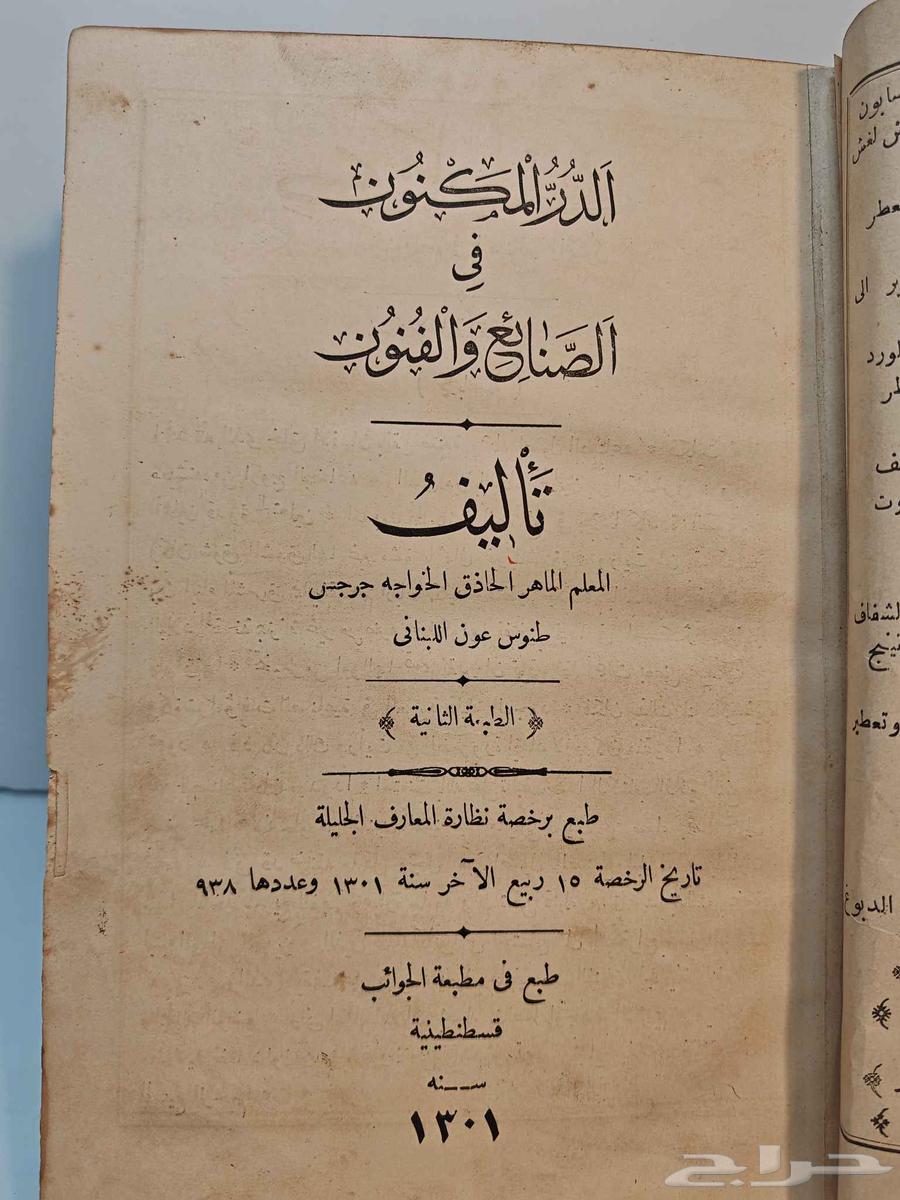 اَلدُّرُّ الْمَكْنُون
فِي
اَلصَّنَائِعِ وَالْفُنُون
تَأْلِيفُ
المعلم الماهر الحاذق الخواجه جرجس
طنوس عون اللبنانى
﴿ الطبعة الثانية ﴾
طبع برخصة نظارة المعارف الجليلة
تاريخ الرخصة ١٥ ربيع الآخر سنة ١٣٠١ وعددها ٩٣٨
طبع فى مطبعة الجوائب
قسطنطينية
سـنه
١٣٠١
لغش
ير الى
وتعطير
حراج